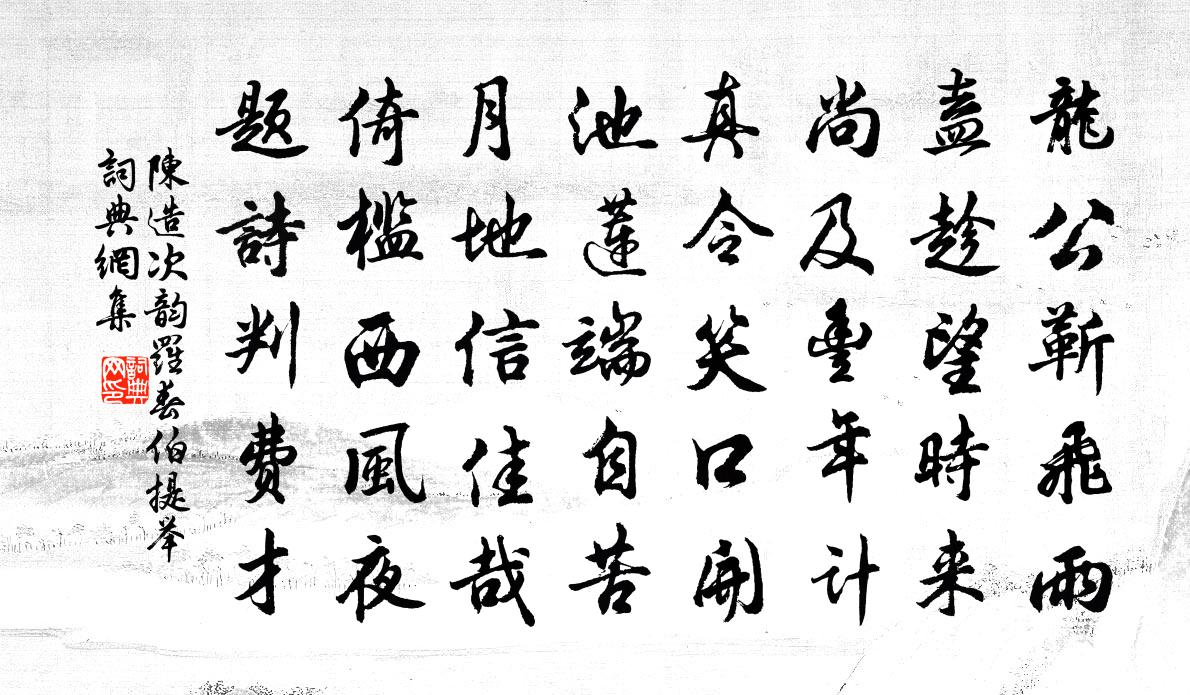 龍公靳飛雨
盍趁望時来
尚及豐年計
真令笑口開
池蓮端自苦
月地信佳哉
倚檻西風夜
题詩判費才
陳造次韵羅春伯提举
詞典網集
詞典
网印